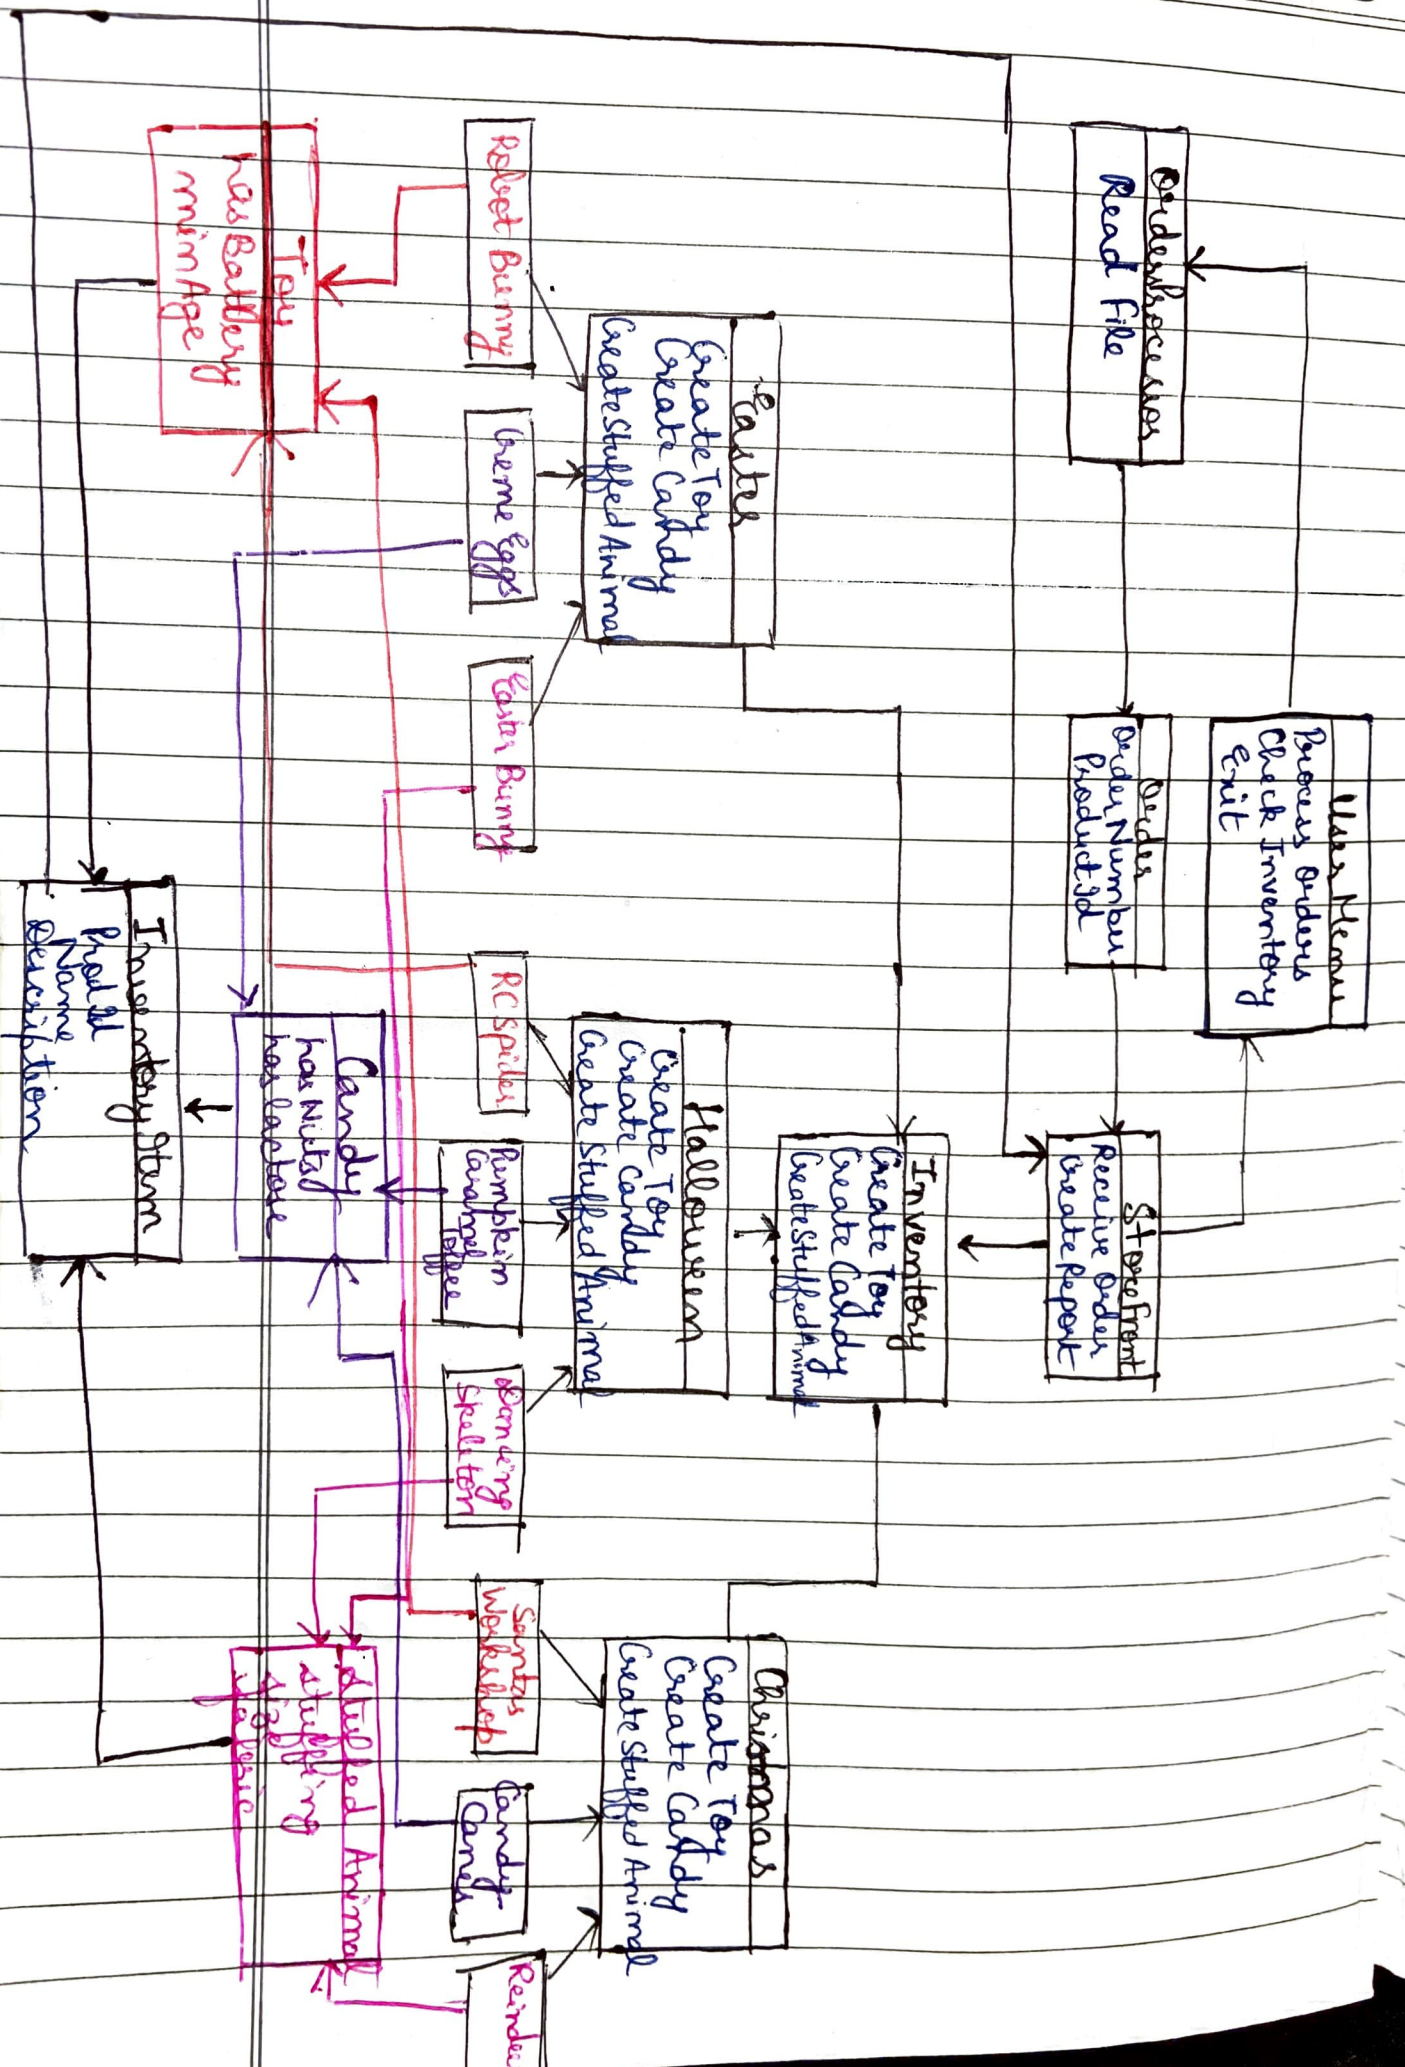 User Menu
Process Orders
Check Inventory
Exit
Order Processor
Read File
Order
Order Number
Product Id
Storefront
Receive Order
Create Report
Inventory
Create Toy
Create Candy
Create Stuffed Animal
Easter
Create Toy
Create Candy
Create Stuffed Animal
Halloween
Create Toy
Create Candy
Create Stuffed Animal
Christmas
Create Toy
Create Candy
Create Stuffed Animal
Robot Bunny
Creme Eggs
Easter Bunny
RC Spider
Pumpkin
Caramel
Toffee
Dancing
Skeleton
Santas
Workshop
Candy
Canes
Reindee
Toy
has Battery
min Age
Candy
has Nuts
has lactose
Stuffed Animal
stuffing
size
fabric
Inventory Item
Prod Id
Name
Description